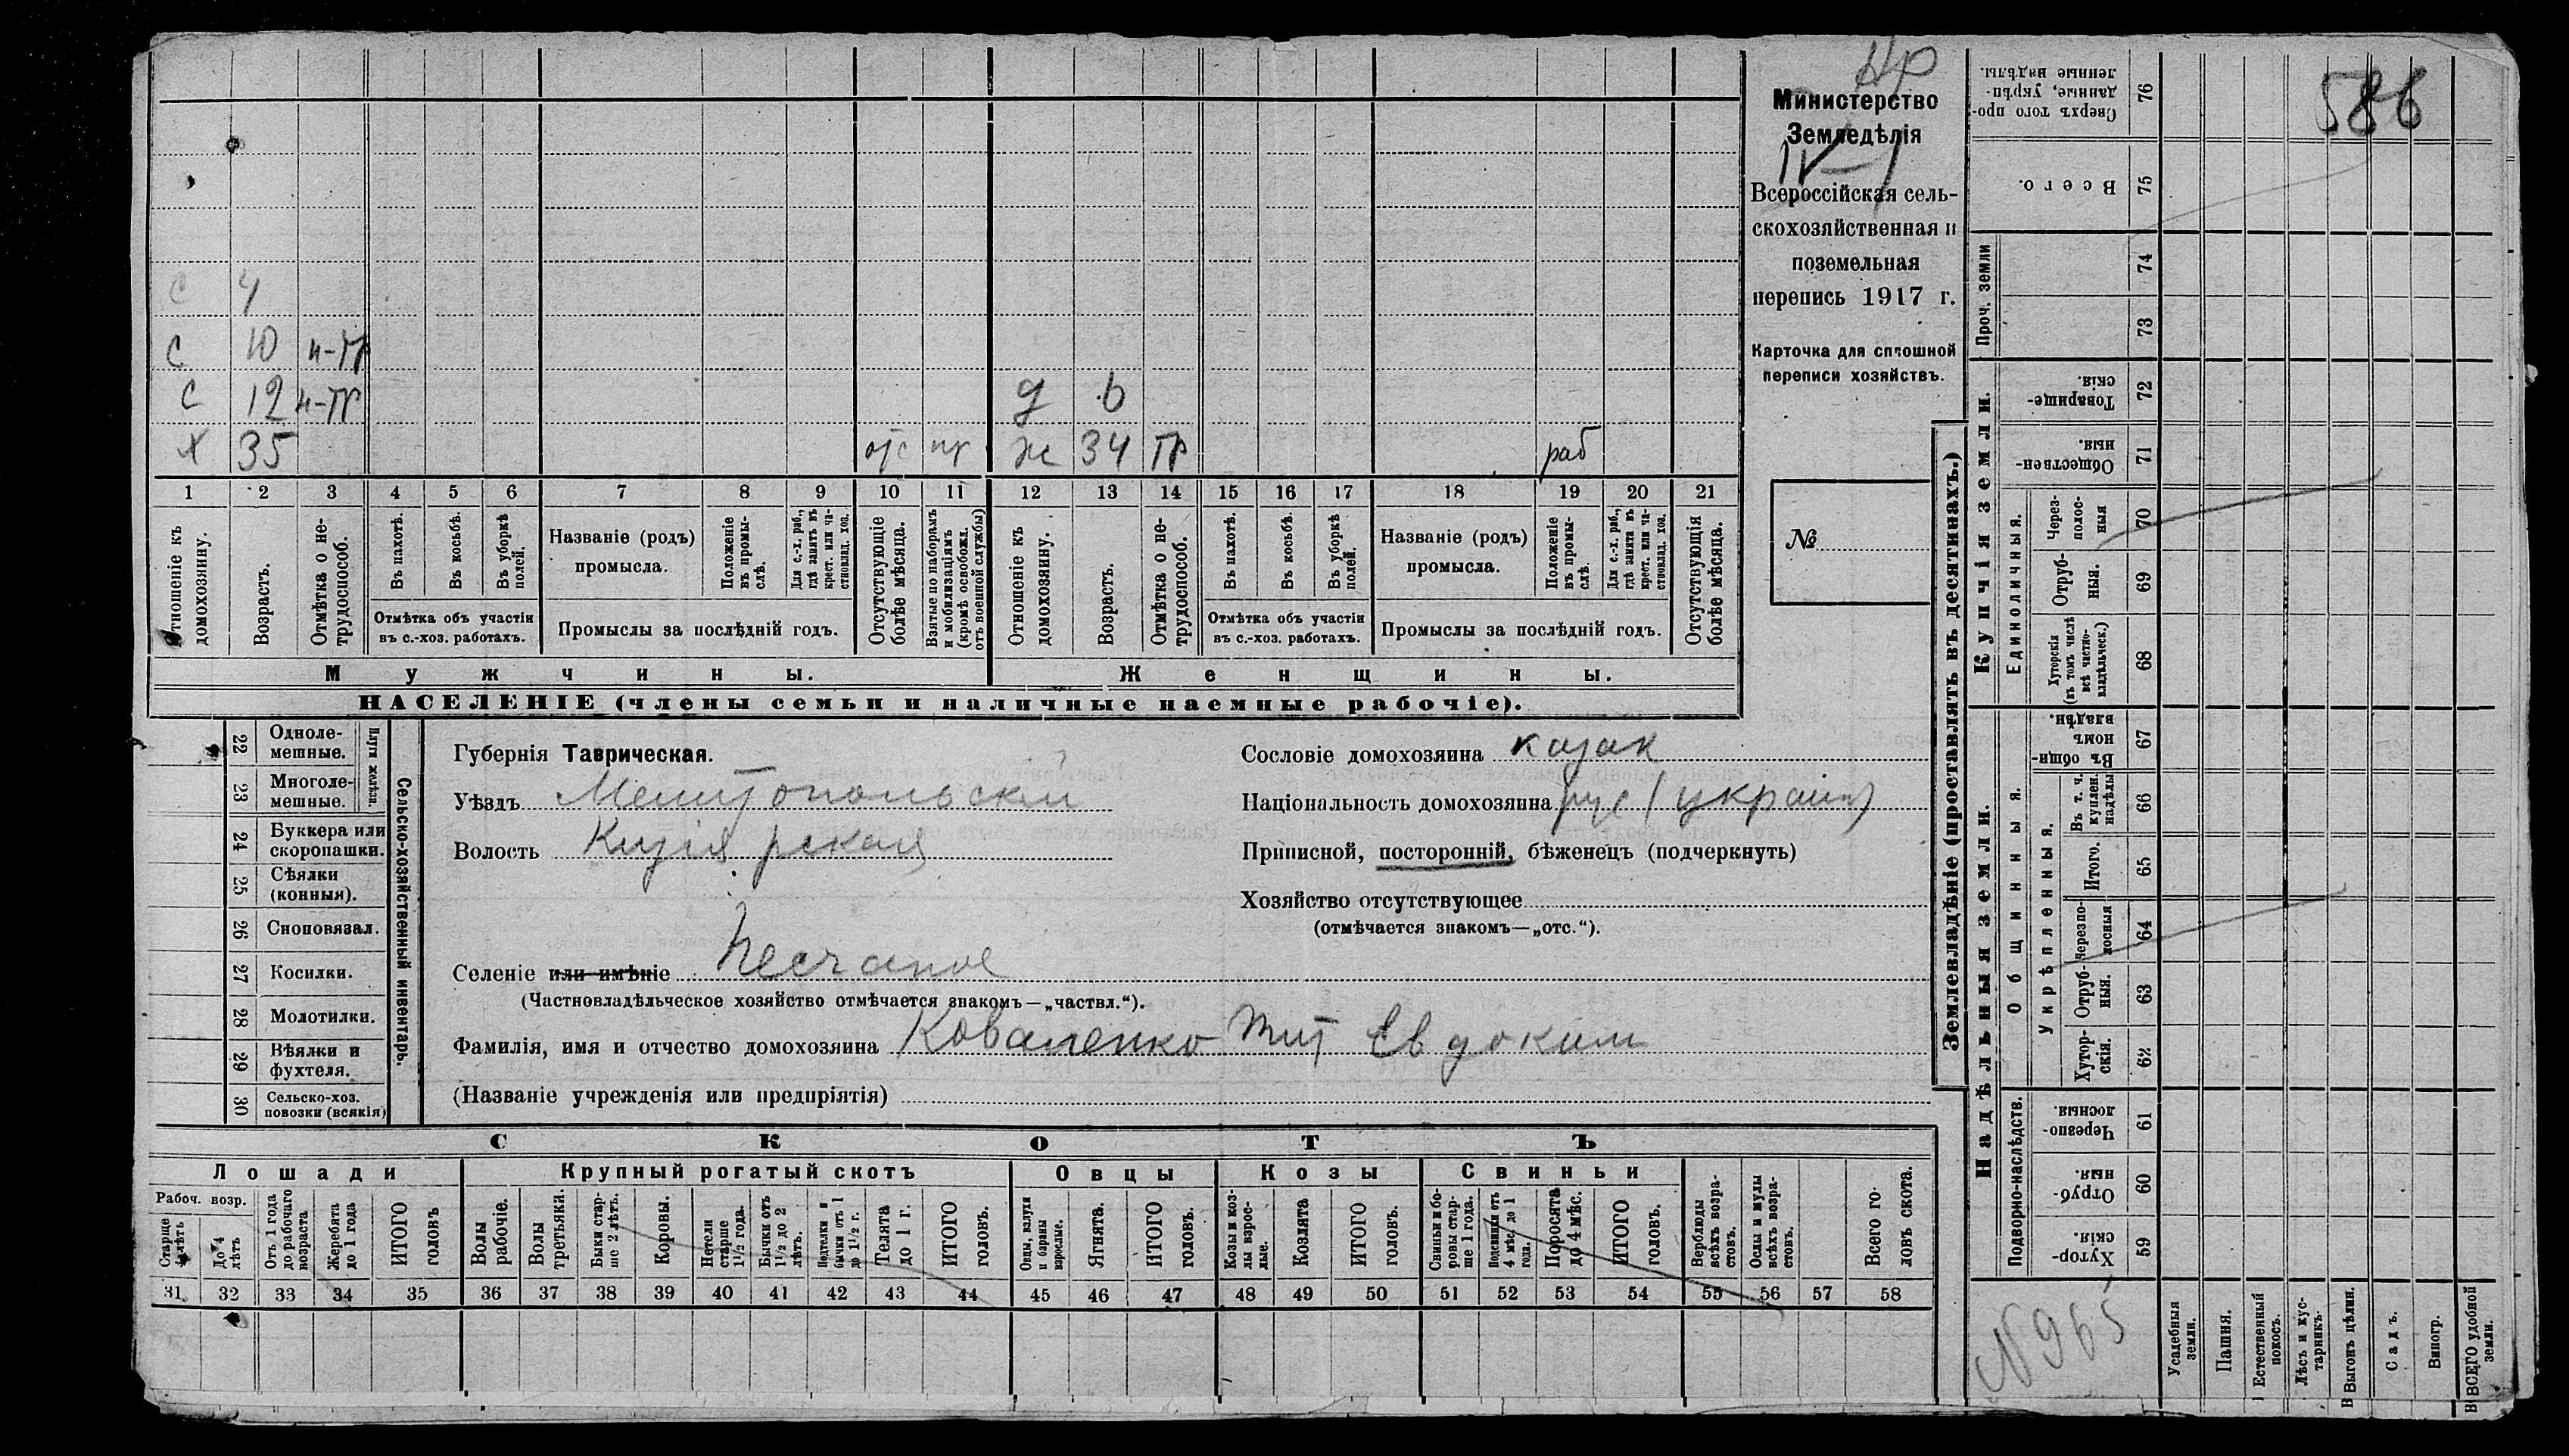 Нр
Министерство
Земледѣлія
IV-1
Всероссійская сель-
скохозяйственная и
поземельная
перепись 1917 г.
Карточка для сплошной
переписи хозяйствъ.
№
586
с 4
с 10 н-гр
с 12 н-гр д 6
х 35 отс ж 34 гр раб
1 2 3 4 5 6 7 8 9 10 11 12 13 14 15 16 17 18 19 20 21
Отношеніе къ домохозяину.
Возрастъ.
Отмѣтка о не-трудоспособ.
Въ пахотѣ.
Въ косьбѣ.
Въ уборкѣ полей.
Отмѣтка объ участіи
въ с.-хоз. работахъ.
Названіе (родъ)
промысла.
Положеніе въ промы-слѣ.
Для с.-х. раб., гдѣ занятъ въ крест. или ча-стновлад. хоз.
Промыслы за послѣдній годъ.
Отсутствующіе болѣе мѣсяца.
Взятые по наборамъ и мобилизаціямъ (кромѣ освобожд. отъ военной службы)
Отношеніе къ домохозяину.
Возрастъ.
Отмѣтка о не-трудоспособ.
Въ пахотѣ.
Въ косьбѣ.
Въ уборкѣ полей.
Отмѣтка объ участіи
въ с.-хоз. работахъ.
Названіе (родъ)
промысла.
Положеніе въ промы-слѣ.
Для с.-х. раб., гдѣ занята въ крест. или ча-стновлад. хоз.
Промыслы за послѣдній годъ.
Отсутствующія болѣе мѣсяца.
Мужчины.
Женщины.
НАСЕЛЕНІЕ (члены семьи и наличные наемные рабочіе).
22 Одноле-мешные.
23 Многоле-мешные.
Плуги желѣзн.
24 Буккера или скоропашки.
25 Сѣялки (конныя).
26 Сноповязал.
27 Косилки.
28 Молотилки.
29 Вѣялки и фухтеля.
30 Сельско-хоз. повозки (всякія)
Сельско-хозяйственный инвентарь.
Губернія Таврическая.
Уѣздъ Мелитопольскій
Волость Кизіярская
Селеніе или имѣніе Песчаное
(Частновладѣльческое хозяйство отмѣчается знакомъ—„частвл.“).
Фамилія, имя и отчество домохозяина Коваленко Тит Евдоким
(Названіе учрежденія или предпріятія)
Сословіе домохозяина казак
Національность домохозяина рус (украин)
Приписной, посторонній, бѣженецъ (подчеркнуть)
Хозяйство отсутствующее
(отмѣчается знакомъ—„отс.“).
СКОТЪ
Лошади
Крупный рогатый скотъ
Овцы
Козы
Свиньи
Рабоч. возр.
Старше 4 лѣтъ
До 4 лѣтъ
Отъ 1 года до рабочаго возраста
Жеребята до 1 года
ИТОГО головъ
Волы рабочіе.
Волы третьяки.
Быки стар-ше 2 лѣтъ.
Коровы.
Нетели старше 1½ года.
Бычки отъ 1½ до 2 лѣтъ.
Подтелки и бычки отъ 1 до 1½ г.
Телята до 1 г.
ИТОГО головъ.
Овцы, валухи и бараны взрослые.
Ягнята.
ИТОГО головъ.
Козы и коз-лы взрос-лые.
Козлята
ИТОГО головъ.
Свиньи и бо-ровы стар-ше 1 года.
Подсвинки отъ 4 мѣс. до 1 года.
Поросята до 4 мѣс.
ИТОГО головъ.
Верблюды всѣхъ возра-стовъ.
Ослы и мулы всѣхъ возра-стовъ.
Всего го-ловъ скота.
31 32 33 34 35 36 37 38 39 40 41 42 43 44 45 46 47 48 49 50 51 52 53 54 55 56 57 58
Землевладѣніе (проставлять въ десятинахъ.)
Сверхъ того про-данные, укрѣп-ленные надѣлы. 76
Всего. 75
Проч. земли
74
73
Купчія земли.
Товарище-скія. 72
Обществен-ныя. 71
Единоличныя.
Через-полос-ныя 70
Отруб-ныя. 69
Хуторскія (въ томъ числѣ всѣ частно-владѣльческ.) 68
Надѣльныя земли.
Общинныя.
Въ общин-номъ владѣн. 67
Укрѣпленныя.
Въ т. ч. куплен. надѣлы 66
Итого. 65
Черезпо-лосныя 64
Отруб-ныя. 63
Хутор-скія. 62
Подворно-наслѣдств.
Черезпо-лосныя. 61
Отруб-ныя. 60
Хутор-скія. 59
№965
Усадебныя земли.
Пашня.
Естественный покосъ.
Лѣсъ и кус-тарникъ.
Выгонъ цѣлин.
Садъ.
Виногр.
ВСЕГО удобной земли.